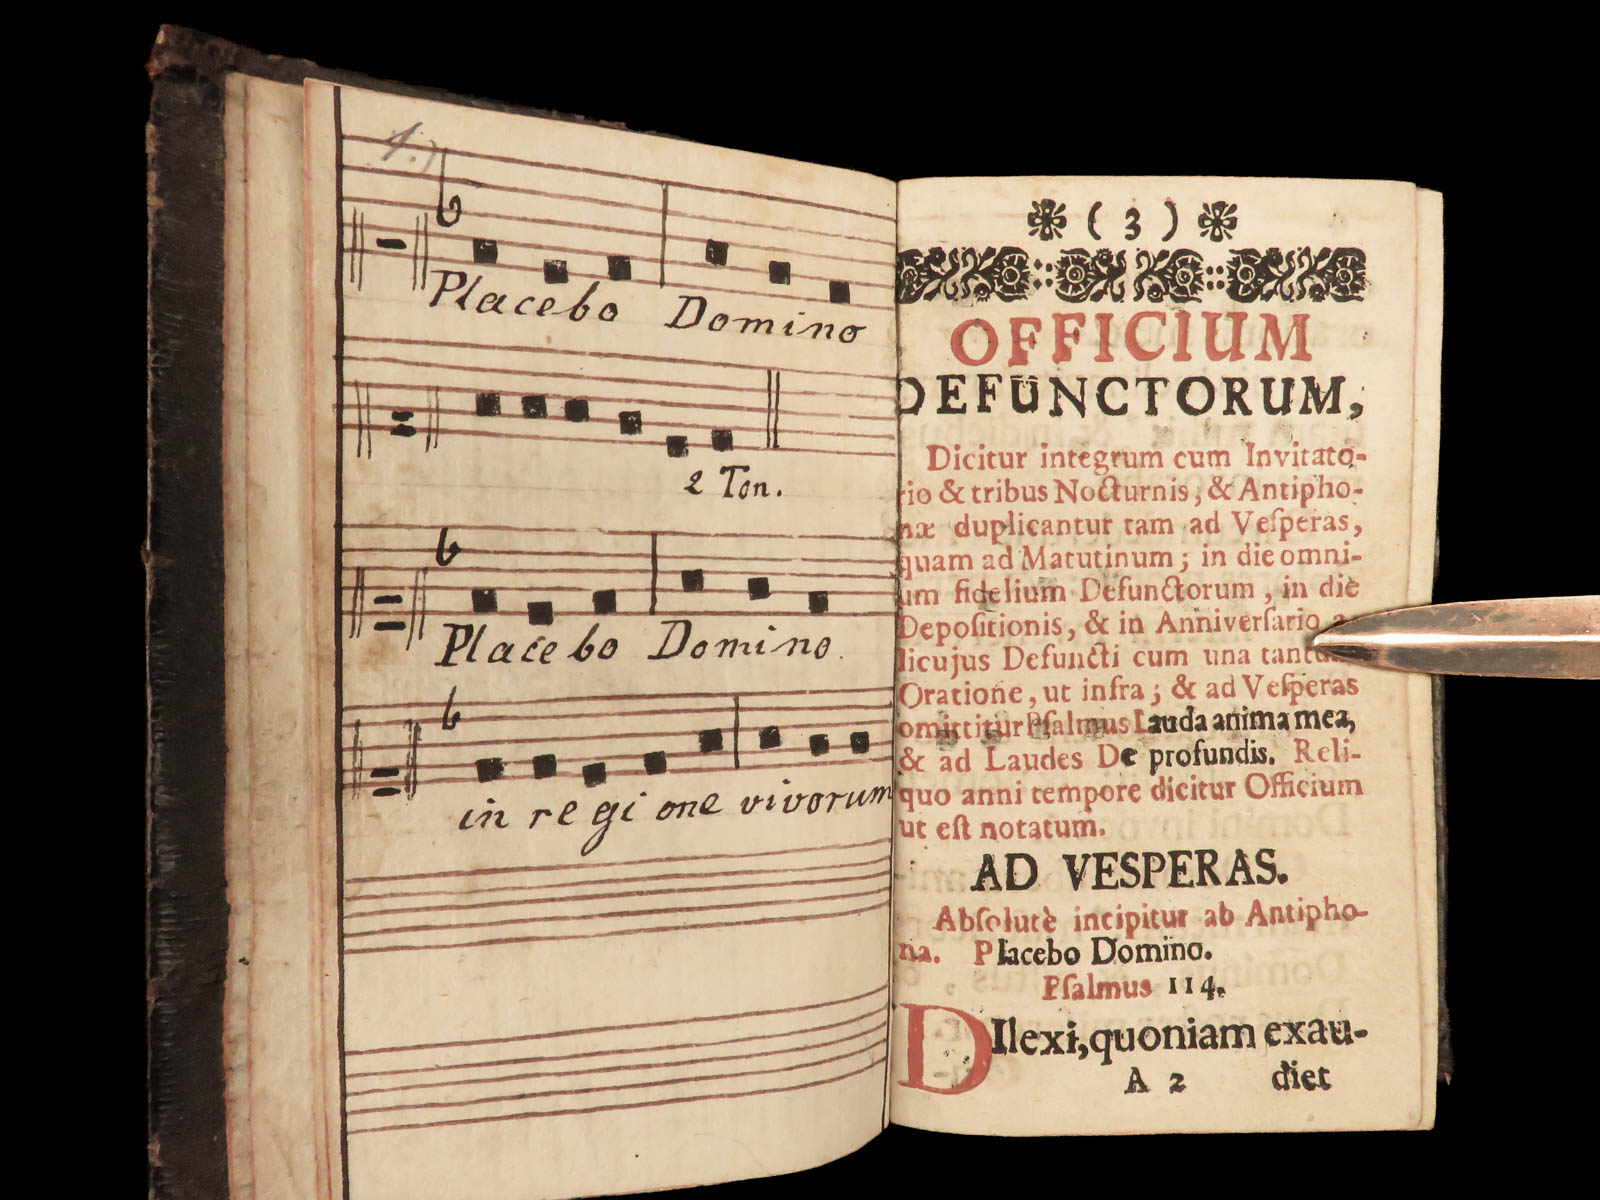 1.)
Placebo Domino
2 Ton.
Placebo Domino.
in re gi one vivorum
( 3 )
OFFICIUM
DEFUNCTORUM,
Dicitur integrum cum Invitato-
rio & tribus Nocturnis, & Antipho-
næ duplicantur tam ad Veſperas,
quam ad Matutinum; in die omni-
um fidelium Defunctorum, in die
Depoſitionis, & in Anniverſario a-
licujus Defuncti cum una
Oratione, ut infra; & ad Veſperas
omittitur Pſalmus Lauda anima mea,
& ad Laudes De profundis. Reli-
quo anni tempore dicitur Officium
ut eſt notatum.
AD VESPERAS.
Abſolutè incipitur ab Antipho-
na. Placebo Domino.
Pſalmus 114.
DIlexi, quoniam exau-
A 2 diet